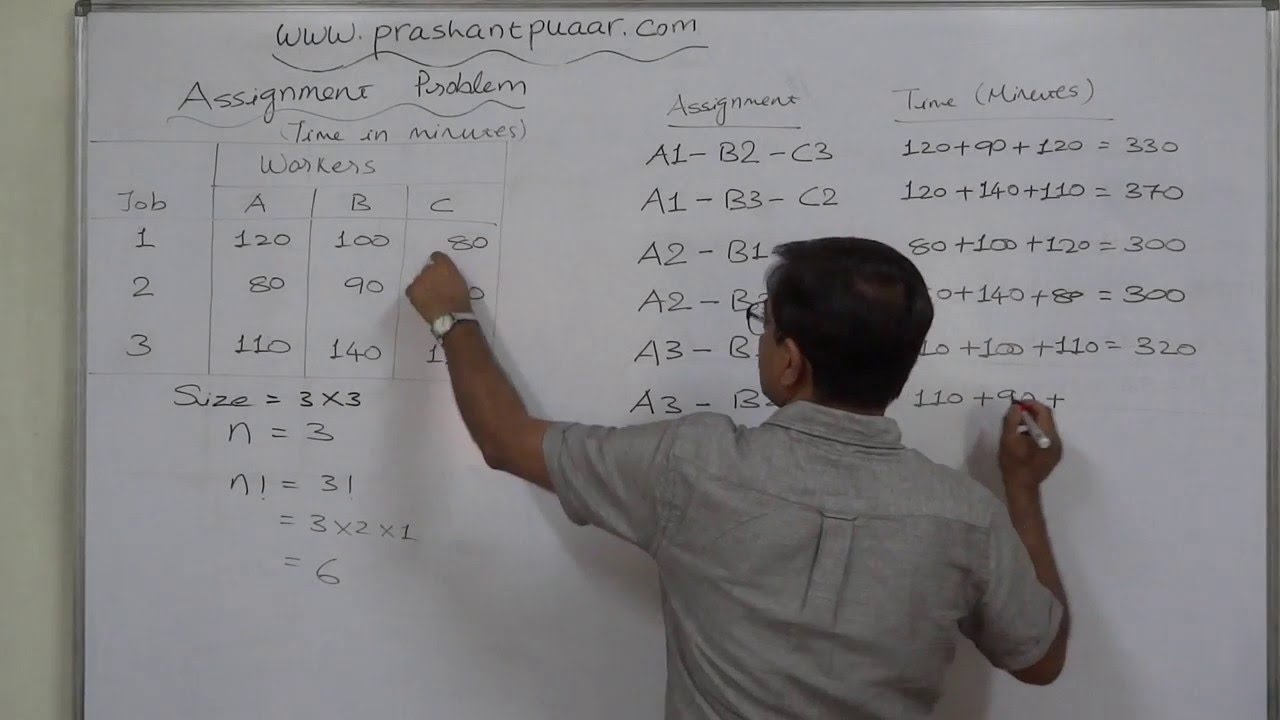 www.prashantpuaar.com
Assignment Problem
(Time in minutes)
Workers
Job A B C
1 120 100 80
2 80 90
3 110 140
Size = 3×3
n = 3
n! = 3!
= 3×2×1
= 6
Assignment Time (Minutes)
A1 - B2 - C3 120+90+120 = 330
A1 - B3 - C2 120+140+110 = 370
A2 - B1 80+100+120 = 300
A2 - +140+80 = 300
A3 - +100+110 = 320
A3 - 110+90+